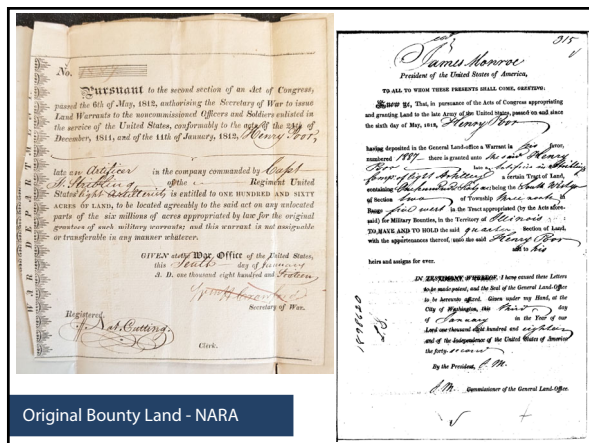 No.
Pursuant to the second section of an Act of Congress,
passed the 6th of May, 1812, authorising the Secretary of War to issue
Land Warrants to the noncommissioned Officers and Soldiers enlisted in
the service of the United States, conformably to the acts of the 24th of
December, 1811, and of the 11th of January, 1812, Henry Poor,
late an Artificer in the company commanded by Capt
of the Regiment United
States light Artillery is entitled to ONE HUNDRED AND SIXTY
ACRES OF LAND, to be located agreeably to the said act on any unlocated
parts of the six millions of acres appropriated by law for the original
grantees of such military warrants; and this warrant is not assignable
or transferable in any manner whatever.
GIVEN at the War Office of the United States,
this Tenth day of January
A. D. one thousand eight hundred and Sixteen
Secretary of War.
Registered.
Nat. Cutting.
Clerk.
WAR DEPARTM
315
James Monroe
President of the United States of America,
TO ALL TO WHOM THESE PRESENTS SHALL COME, GREETING:
Know Ye, That, in pursuance of the Acts of Congress appropriating
and granting Land to the late Army of the United States, passed on and since
the sixth day of May, 1812, Henry Poor
having deposited in the General Land-office a Warrant in his favor,
numbered 1887 there is granted unto the said Henry
Poor late an Artificer in
Comp. of light Artillery a certain Tract of Land,
containing One hundred & Sixty acres being the South West qr
of Section two of Township three north in
Range five west in the Tract appropriated (by the Acts afore-
said) for Military Bounties, in the Territory of Illinois
TO HAVE AND TO HOLD the said quarter Section of Land,
with the appurtenances thereof, unto the said Henry Poor
and to his
heirs and assigns for ever.
IN TESTIMONY WHEREOF, I have caused these Letters
to be made patent, and the Seal of the General Land-Office
to be hereunto affixed. Given under my Hand, at the
City of Washington, this third day
of January in the Year of our
Lord one thousand eight hundred and eighteen
and of the Independence of the United States of America
the forty-second
By the President, J. M.
J. M. Commissioner of the General Land-Office.
L.S.
Original Bounty Land - NARA